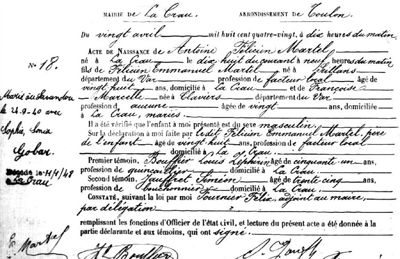 MAIRIE DE La Crau. ARRONDISSEMENT DE Toulon
Du vingt avril mil huit cent quatre-vingt, à dix heures du matin
N° 18.
ACTE DE NAISSANCE de Antoine Félicien Martel
né à La Crau le dix huit du courant à neuf heures du matin
fils de Félicien Emmanuel Martel né à
département du Var profession de facteur local âgé de
vingt huit ans, domicilié à La Crau et de Françoise
Marcelle née à Claviers département du Var
profession d'aucune âgée de vingt ans, domiciliée
à La Crau, mariés.
Il a été vérifié que l'enfant à moi présenté est du sexe masculin.
Sur la déclaration à moi faite par ledit Félicien Emmanuel Martel, père
de l'enfant âgé de vingt huit ans, profession de facteur local
domicilié à La Crau
Premier témoin, Bouffier Louis âgé de cinquante un ans,
profession de domicilié à La Crau.
Second témoin, Jauffret Siméon âgé de trente cinq ans,
profession de bouchonnier domicilié à La Crau.
CONSTATÉ, suivant la loi par moi Fournier Félix, adjoint au maire,
par délégation
remplissant les fonctions d'Officier de l'état civil, et lecture du présent acte a été donnée à la
partie déclarante et aux témoins, qui ont signé.
Marié à
le 21.9.40 avec
Sophie Sonia
Gobar
Décédé le
La Crau
Martel
Bouffier